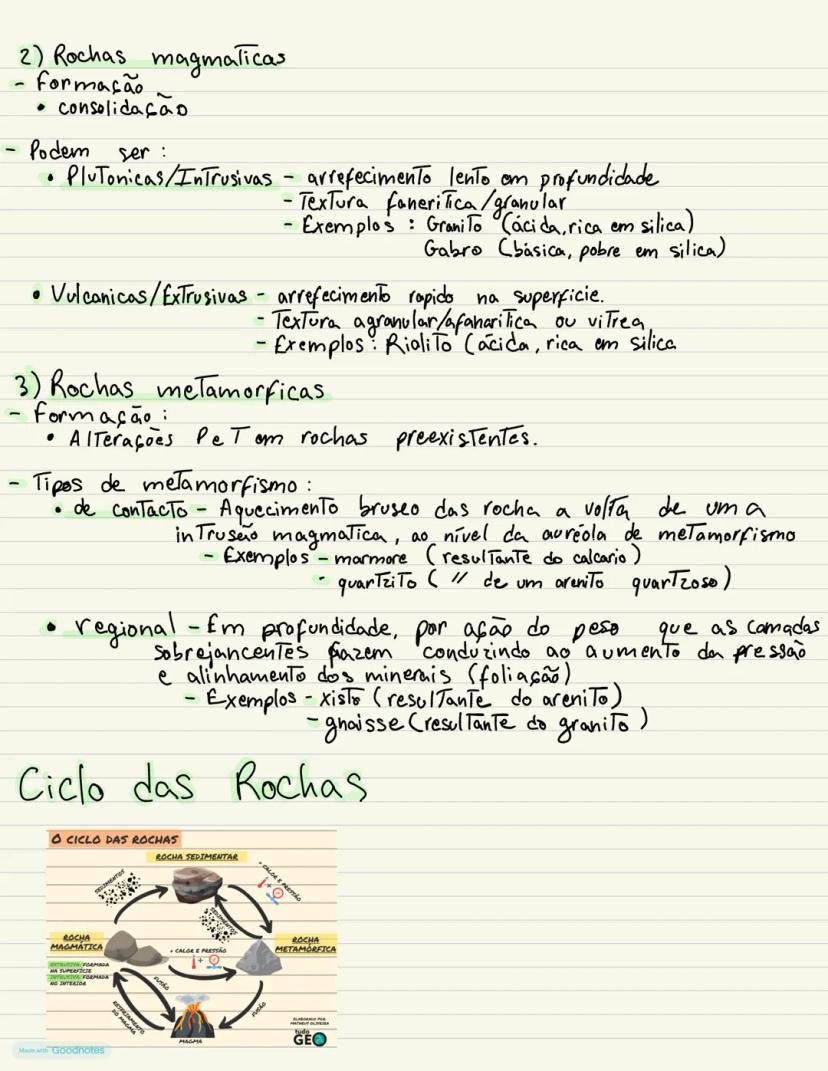 2) Rochas magmaticas
- Formação
• consolidação
- Podem ser :
• Plutonicas/Intrusivas - arrefecimento lento em profundidade
- Textura faneritica/granular
- Exemplos : Granito (ácida, rica em silica)
Gabro (básica, pobre em silica)
• Vulcanicas/Extrusivas - arrefecimento rapido na superficie.
- Textura agranular/afanaritica ou vitrea
- Exemplos : Riolito (ácida, rica em silica
3) Rochas metamorficas
- Formação :
• Alterações P e T em rochas preexistentes.
- Tipos de metamorfismo :
• de contacto - Aquecimento brusco das rocha a volta de uma
intrusão magmatica, ao nível da auréola de metamorfismo
- Exemplos - marmore (resultante do calcario)
- quartzito ( // de um arenito quartzoso)
• regional - Em profundidade, por ação do peso que as camadas
sobrejancentes fazem conduzindo ao aumento da pressão
e alinhamento dos minerais (foliação)
- Exemplos - xisto (resultante do arenito)
- gnaisse (resultante do granito)
Ciclo das Rochas
O CICLO DAS ROCHAS
ROCHA SEDIMENTAR
SEDIMENTOS
+ CALOR E PRESSÃO
SEDIMENTOS
ROCHA
MAGMÁTICA
+ CALOR E PRESSÃO
ROCHA
METAMÓRFICA
EXTRUSIVA: FORMADA
NA SUPERFÍCIE
INTRUSIVA: FORMADA
NO INTERIOR
FUSÃO
RESFRIAMENTO
DO MAGMA
FUSÃO
MAGMA
ELABORADO POR:
MATHEUS OLIVEIRA
tudo
GEO
Made with Goodnotes